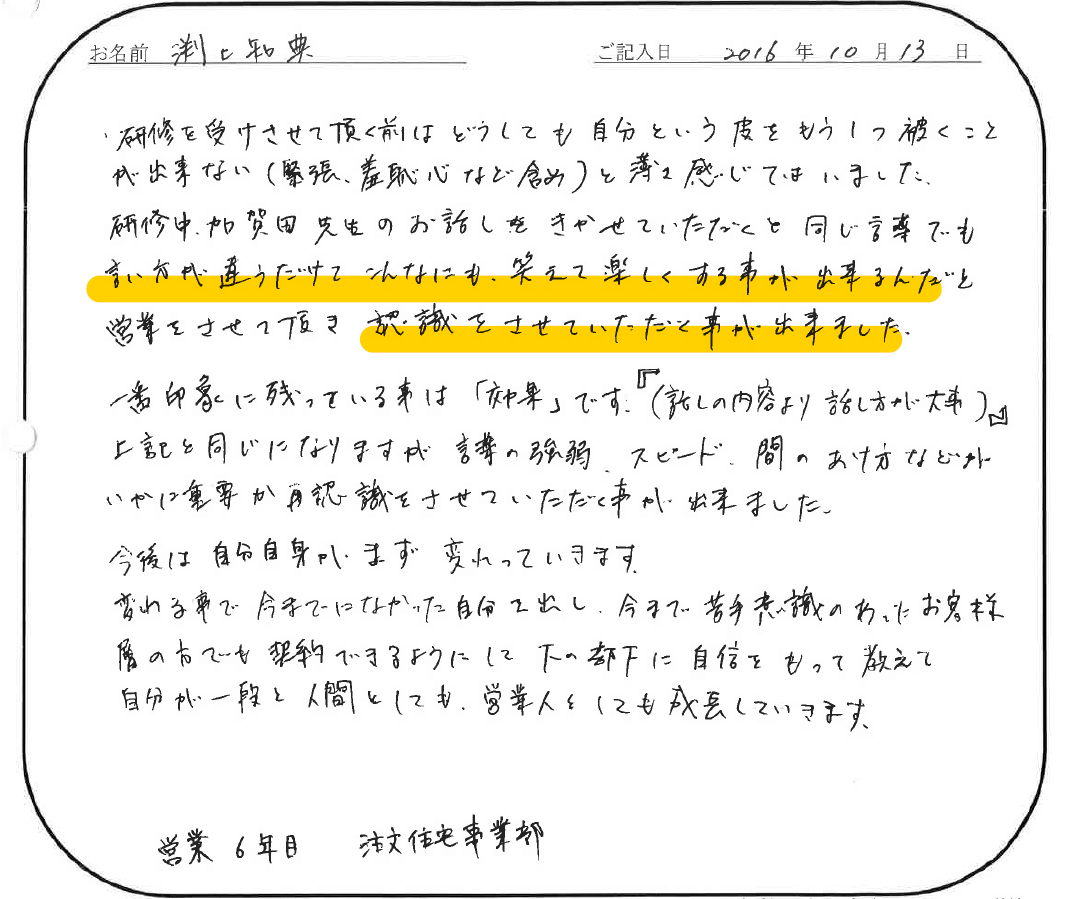 お名前 渕上和典 ご記入日 2016 年 10 月 13 日
・研修を受けさせて頂く前はどうしても自分という皮をもう1つ被くこと
が出来ない(緊張、羞恥心など含め)と薄々感じてはいました。
研修中、加賀田先生のお話しをきかせていただくと同じ言葉でも
言い方が違うだけでこんなにも、笑えて楽しくする事が出来るんだと
営業をさせて頂き 認識をさせていただく事が出来ました。
一番印象に残っている事は「効果」です。『(話しの内容より話し方が大事)』
上記と同じになりますが言葉の強弱、スピード、間のあけ方などが
いかに重要か再認識をさせていただく事が出来ました。
今後は自分自身がまず変わっていきます。
変わる事で今までになかった自分を出し、今まで苦手意識のあったお客様
層の方でも契約できるようにして下の部下に自信をもって教えて
自分が一段と人間としても、営業人としても成長していきます。
営業 6年目 注文住宅事業部